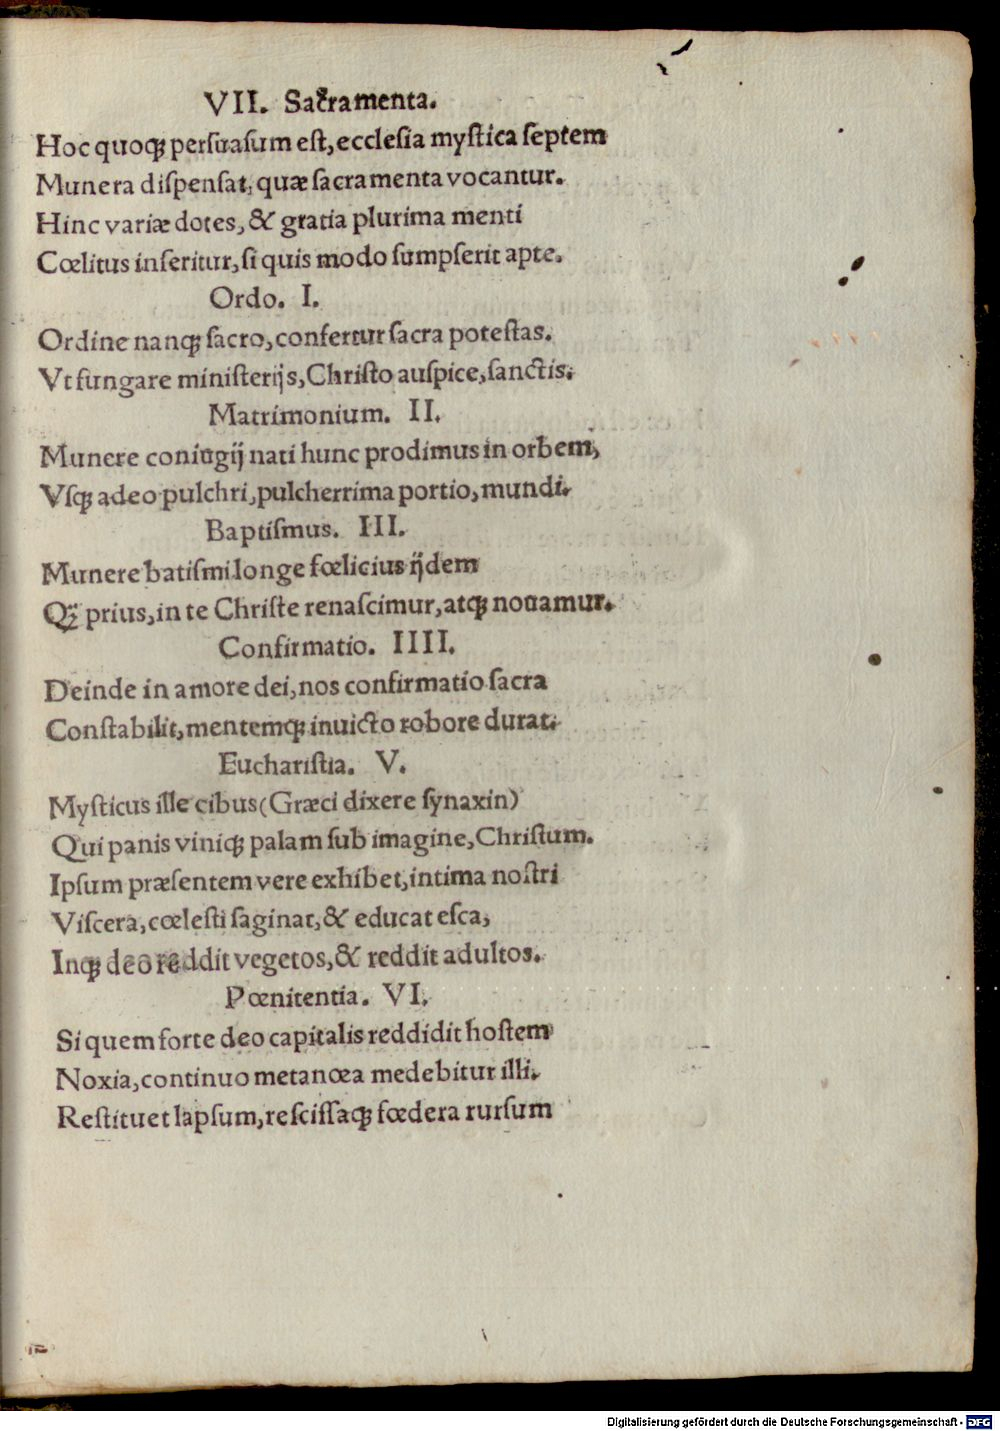 VII. Sacramenta.
Hoc quoqꝫ persuasum est, ecclesia mystica septem
Munera dispensat, quæ sacramenta vocantur.
Hinc variæ dotes, & gratia plurima menti
Cœlitus inseritur, si quis modo sumpserit apte.
Ordo. I.
Ordine nanqꝫ sacro, confertur sacra potestas.
Vt fungare ministerijs, Christo auspice, sanctis.
Matrimonium. II.
Munere coniugij nati hunc prodimus in orbem,
Vsqꝫ adeo pulchri, pulcherrima portio, mundi.
Baptismus. III.
Munere batismi longe fœlicius ijdem
Qꝫ̈ prius, in te Christe renascimur, atqꝫ nouamur.
Confirmatio. IIII.
Deinde in amore dei, nos confirmatio sacra
Constabilit, mentemqꝫ inuicto robore durat.
Eucharistia. V.
Mysticus ille cibus (Græci dixere synaxin)
Qui panis viniqꝫ palam sub imagine, Christum.
Ipsum præsentem vere exhibet, intima nostri
Viscera, cœlesti saginat, & educat esca,
Inqꝫ deo reddit vegetos, & reddit adultos.
Pœnitentia. VI.
Si quem forte deo capitalis reddidit hostem
Noxia, continuo metanœa medebitur illi.
Restituet lapsum, rescissaqꝫ fœdera rursum
Digitalisierung gefördert durch die Deutsche Forschungsgemeinschaft - DFG